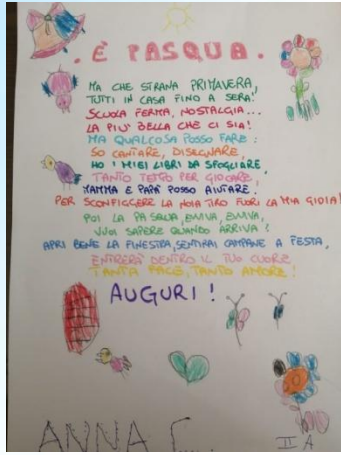 . È PASQUA .
MA CHE STRANA PRIMAVERA,
TUTTI IN CASA FINO A SERA!
SCUOLA FERMA, NOSTALGIA...
LA PIU' BELLA CHE CI SIA!
MA QUALCOSA POSSO FARE:
SO CANTARE, DISEGNARE,
HO I MIEI LIBRI DA SFOGLIARE,
TANTO TEMPO PER GIOCARE,
MAMMA E PAPÀ POSSO AIUTARE.
PER SCONFIGGERE LA NOIA TIRO FUORI LA MIA GIOIA!
POI LA PASQUA, EVVIVA, EVVIVA,
VUOI SAPERE QUANDO ARRIVA?
APRI BENE LA FINESTRA, SENTIRAI CAMPANE A FESTA,
ENTRERÀ DENTRO IL TUO CUORE
TANTA PACE, TANTO AMORE!
AUGURI!
ANNA
II A